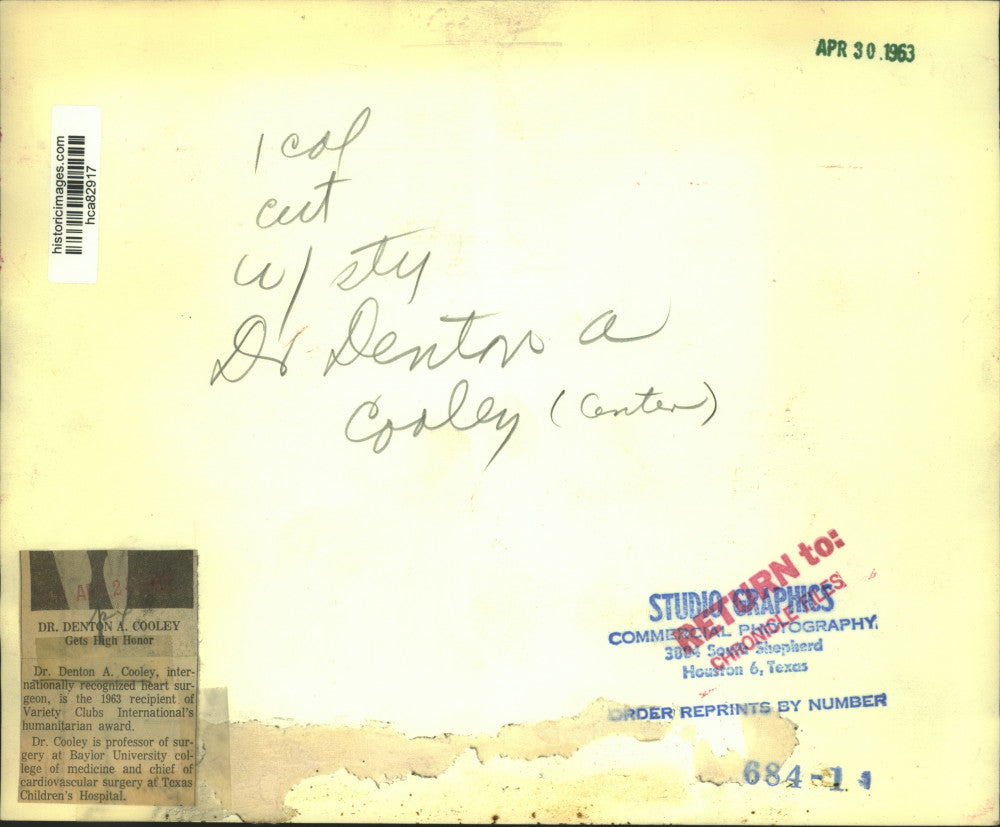 APR 30.1963
historicimages.com
hca82917
1 col
cut
w/ sty
Dr Denton A
Cooley (Center)
DR. DENTON A. COOLEY
Gets High Honor
Dr. Denton A. Cooley, inter-
nationally recognized heart sur-
geon, is the 1963 recipient of
Variety Clubs International's
humanitarian award.
Dr. Cooley is professor of sur-
gery at Baylor University col-
lege of medicine and chief of
cardiovascular surgery at Texas
Children's Hospital.
RETURN to:
CHRONICLE FILES
STUDIO GRAPHICS
COMMERCIAL PHOTOGRAPHY
South Shepherd
Houston 6, Texas
ORDER REPRINTS BY NUMBER
684-1